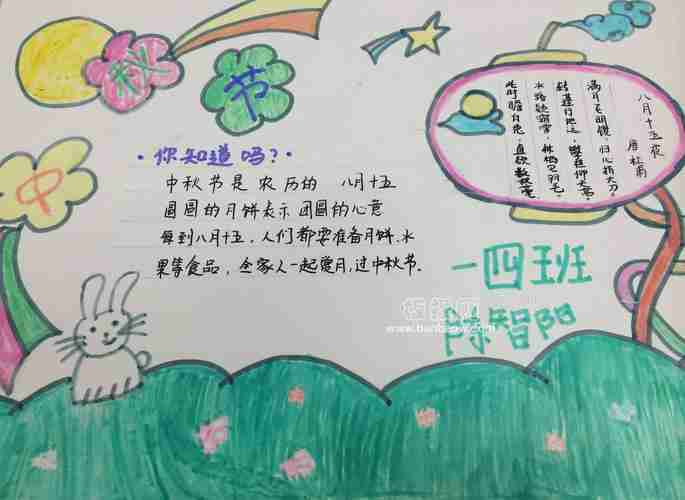 中
秋
节
·你知道吗?·
中秋节是 农历的 八月十五
圆圆的月饼表示 团圆的心意
每到八月十五，人们都要准备月饼、水
果等食品，全家人一起赏月,过中秋节.
八月十五夜
唐 杜甫
满月飞明镜，归心折大刀。
转蓬行地远，攀桂仰天高。
水路疑霜雪，林栖见羽毛。
此时瞻白兔，直欲数秋毫
一四班
陈智阳
板报网